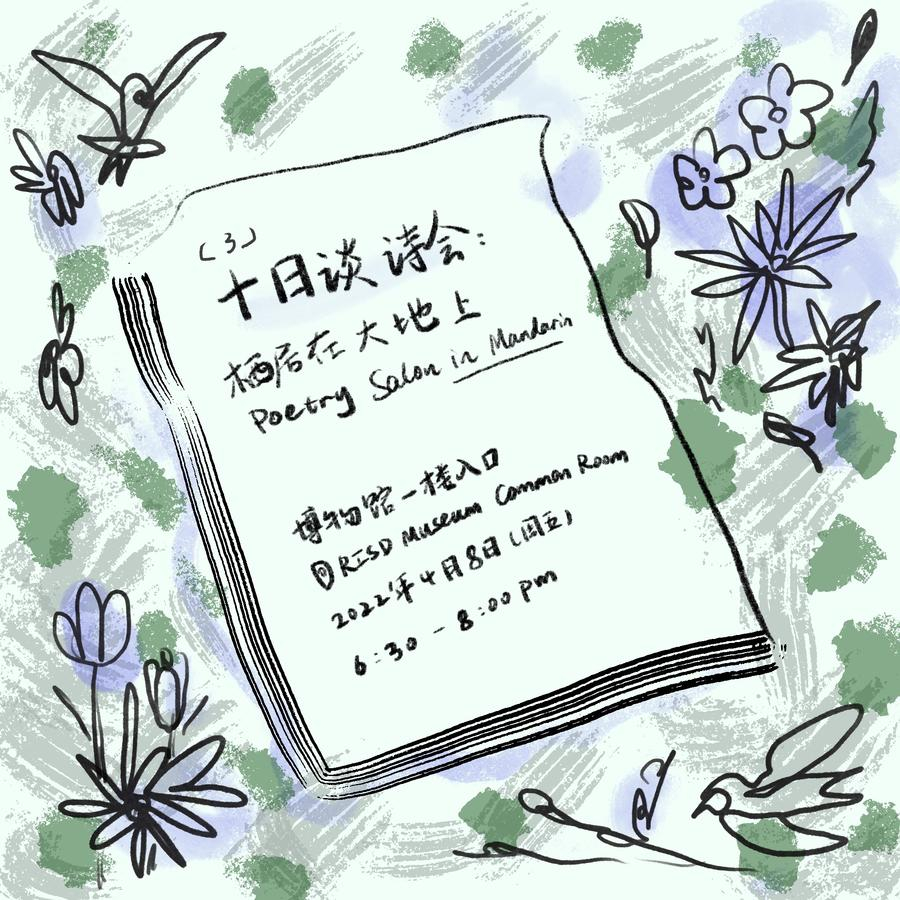 (3)
十日谈 诗会:
栖居在大地上
Poetry Salon in Mandarin
博物馆一楼入口
@RISD Museum Common Room
2022年4月8日(周五)
6:30 - 8:00 pm